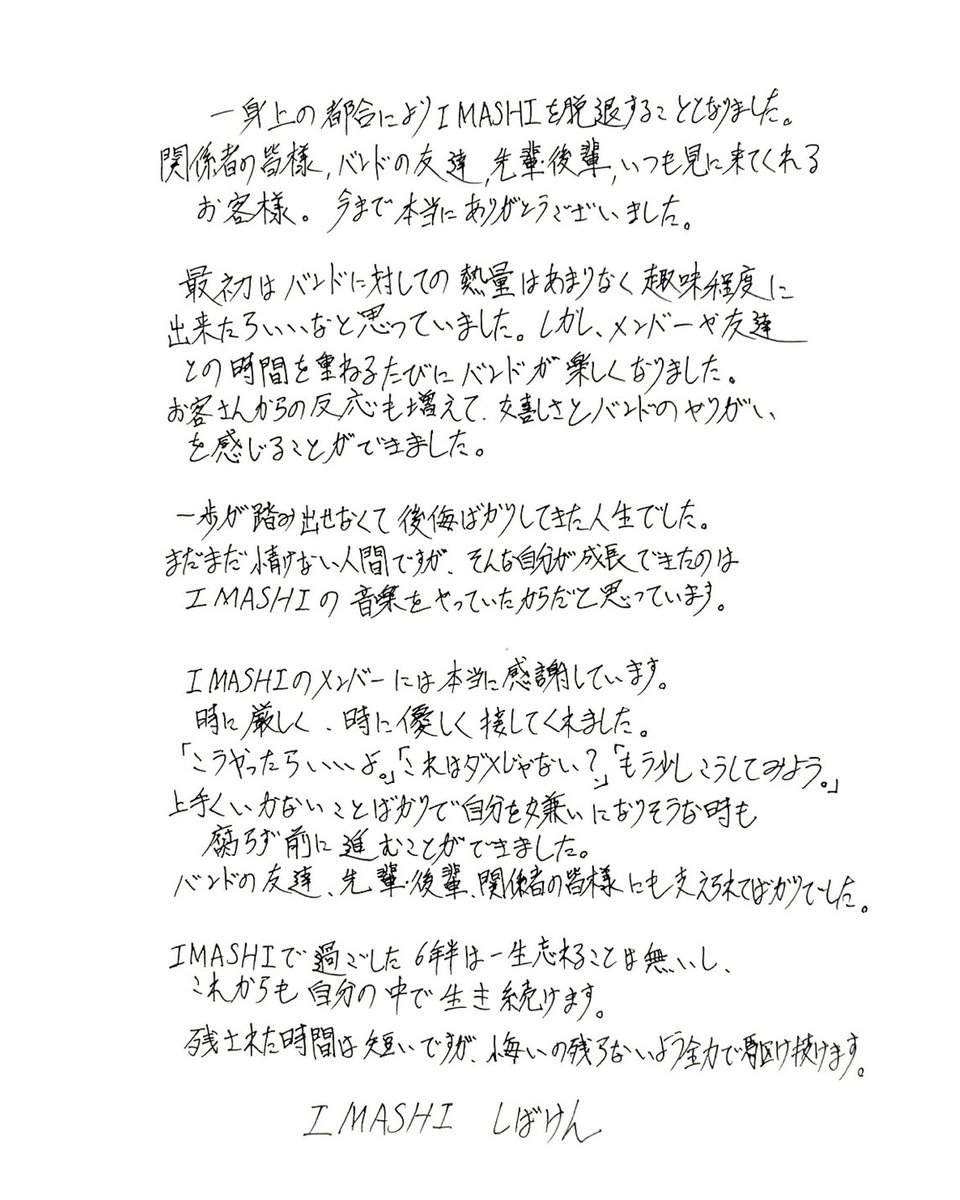 一身上の都合によりIMASHIを脱退することとなりました。
関係者の皆様,バンドの友達,先輩・後輩,いつも見に来てくれる
お客様。今まで本当にありがとうございました。
最初はバンドに対しての熱量はあまりなく趣味程度に
出来たらいいなと思っていました。しかし、メンバーや友達
との時間を重ねるたびにバンドが楽しくなりました。
お客さんからの反応も増えて、嬉しさとバンドのやりがい
を感じることができました。
一歩が踏み出せなくて後悔ばかりしてきた人生でした。
まだまだ情けない人間ですが、そんな自分が成長できたのは
IMASHIの音楽をやっていたからだと思っています。
IMASHIのメンバーには本当に感謝しています。
時に厳しく、時に優しく接してくれました。
「こうやったらいいよ。」「これはダメじゃない?」「もう少しこうしてみよう。」
上手くいかないことばかりで自分を嫌いになりそうな時も
腐らず前に進むことができました。
バンドの友達、先輩・後輩、関係者の皆様にも支えられてばかりでした。
IMASHIで過ごした6年半は一生忘れることは無いし、
これからも自分の中で生き続けます。
残された時間は短いですが、悔いの残らないよう全力で駆け抜けます。
IMASHI しばけん